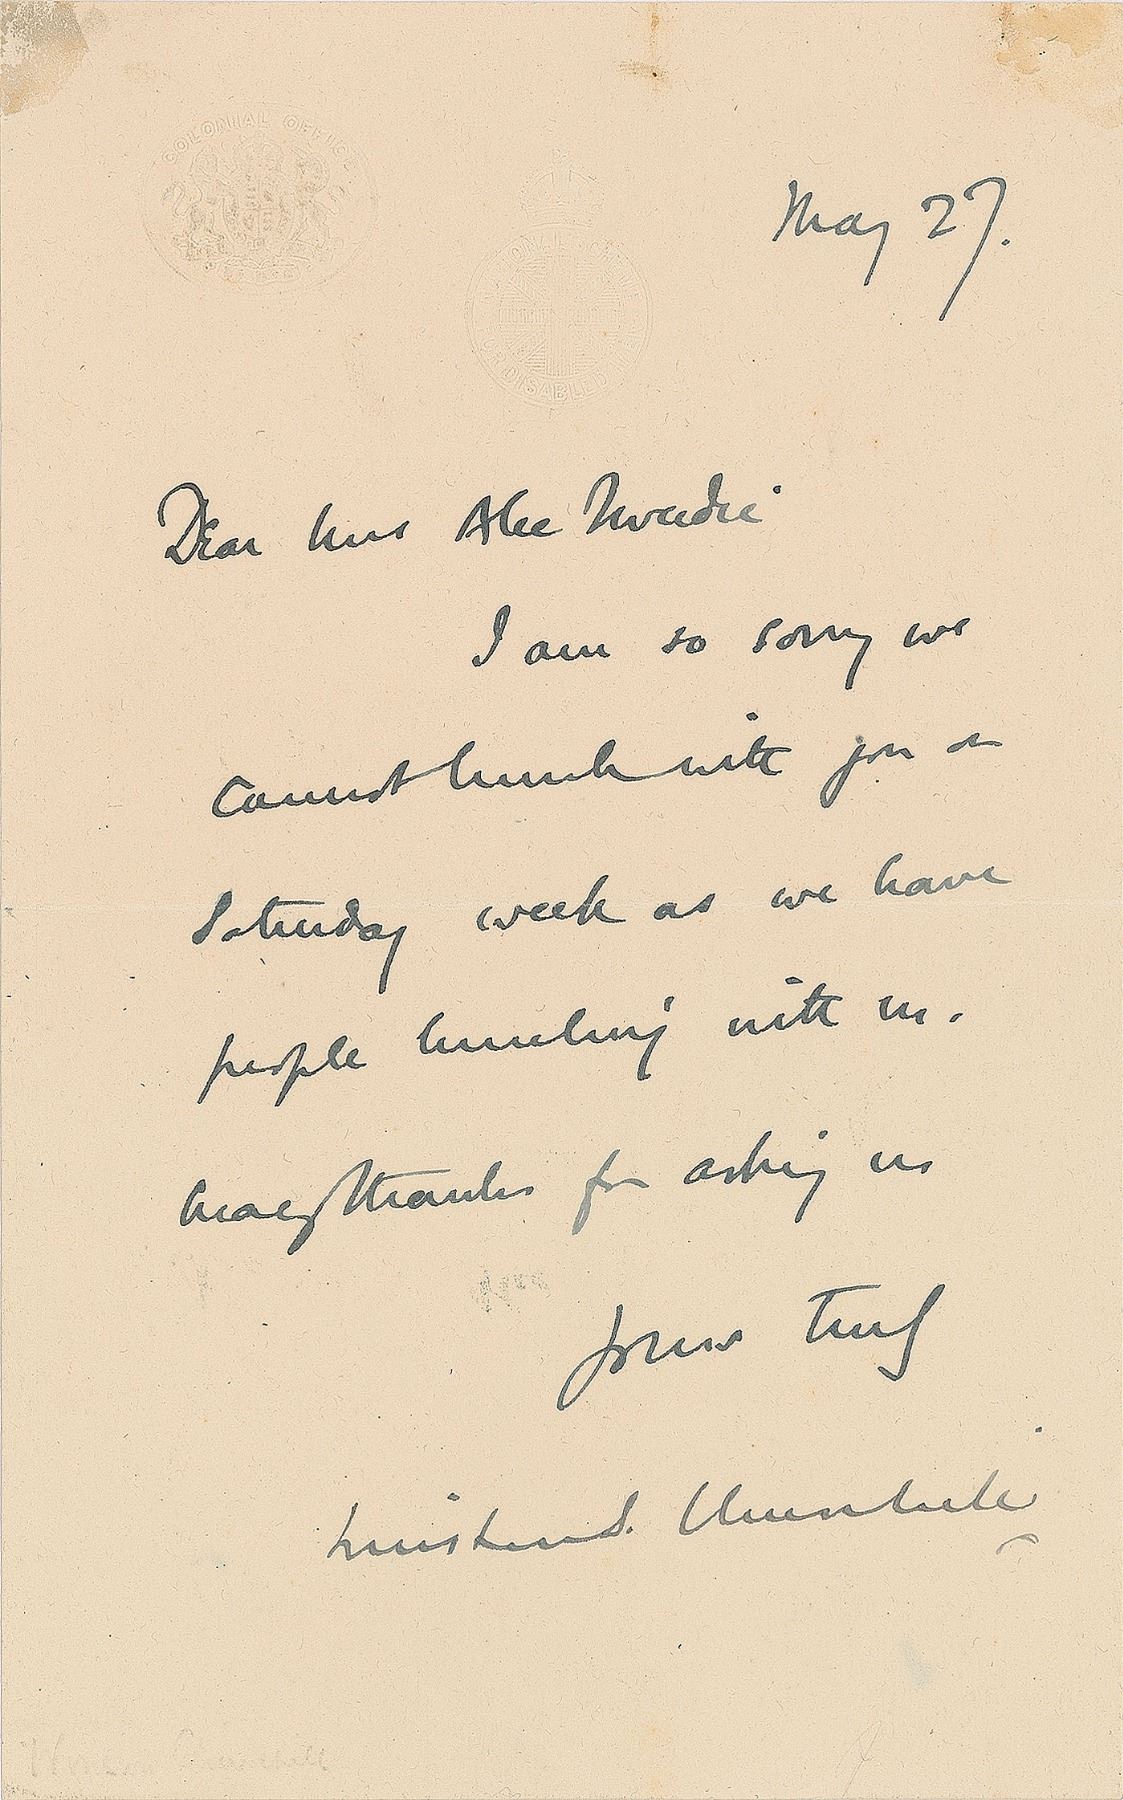 COLONIAL OFFICE
DISABLED
May 27.
Dear Mrs Alec Tweedie
I am so sorry we
cannot lunch with you on
Saturday week as we have
people lunching with us.
Many thanks for asking us
Yours truly
Winston S. Churchill